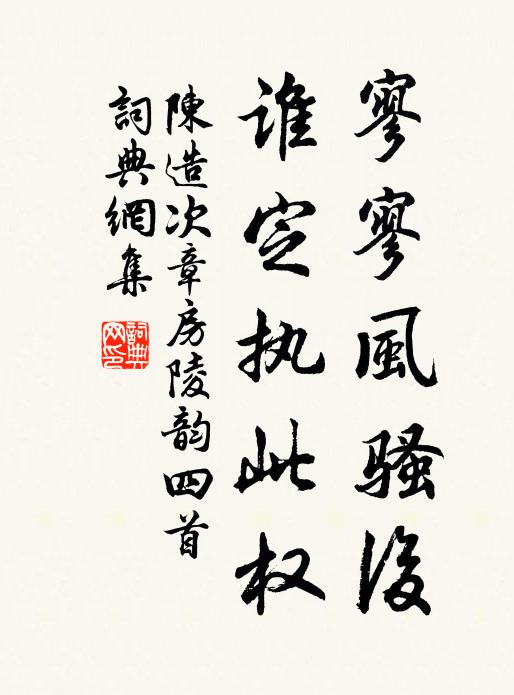 寥寥風骚後
誰定执此权
陳造次章房陵韵四首
詞典網集
詞典网印